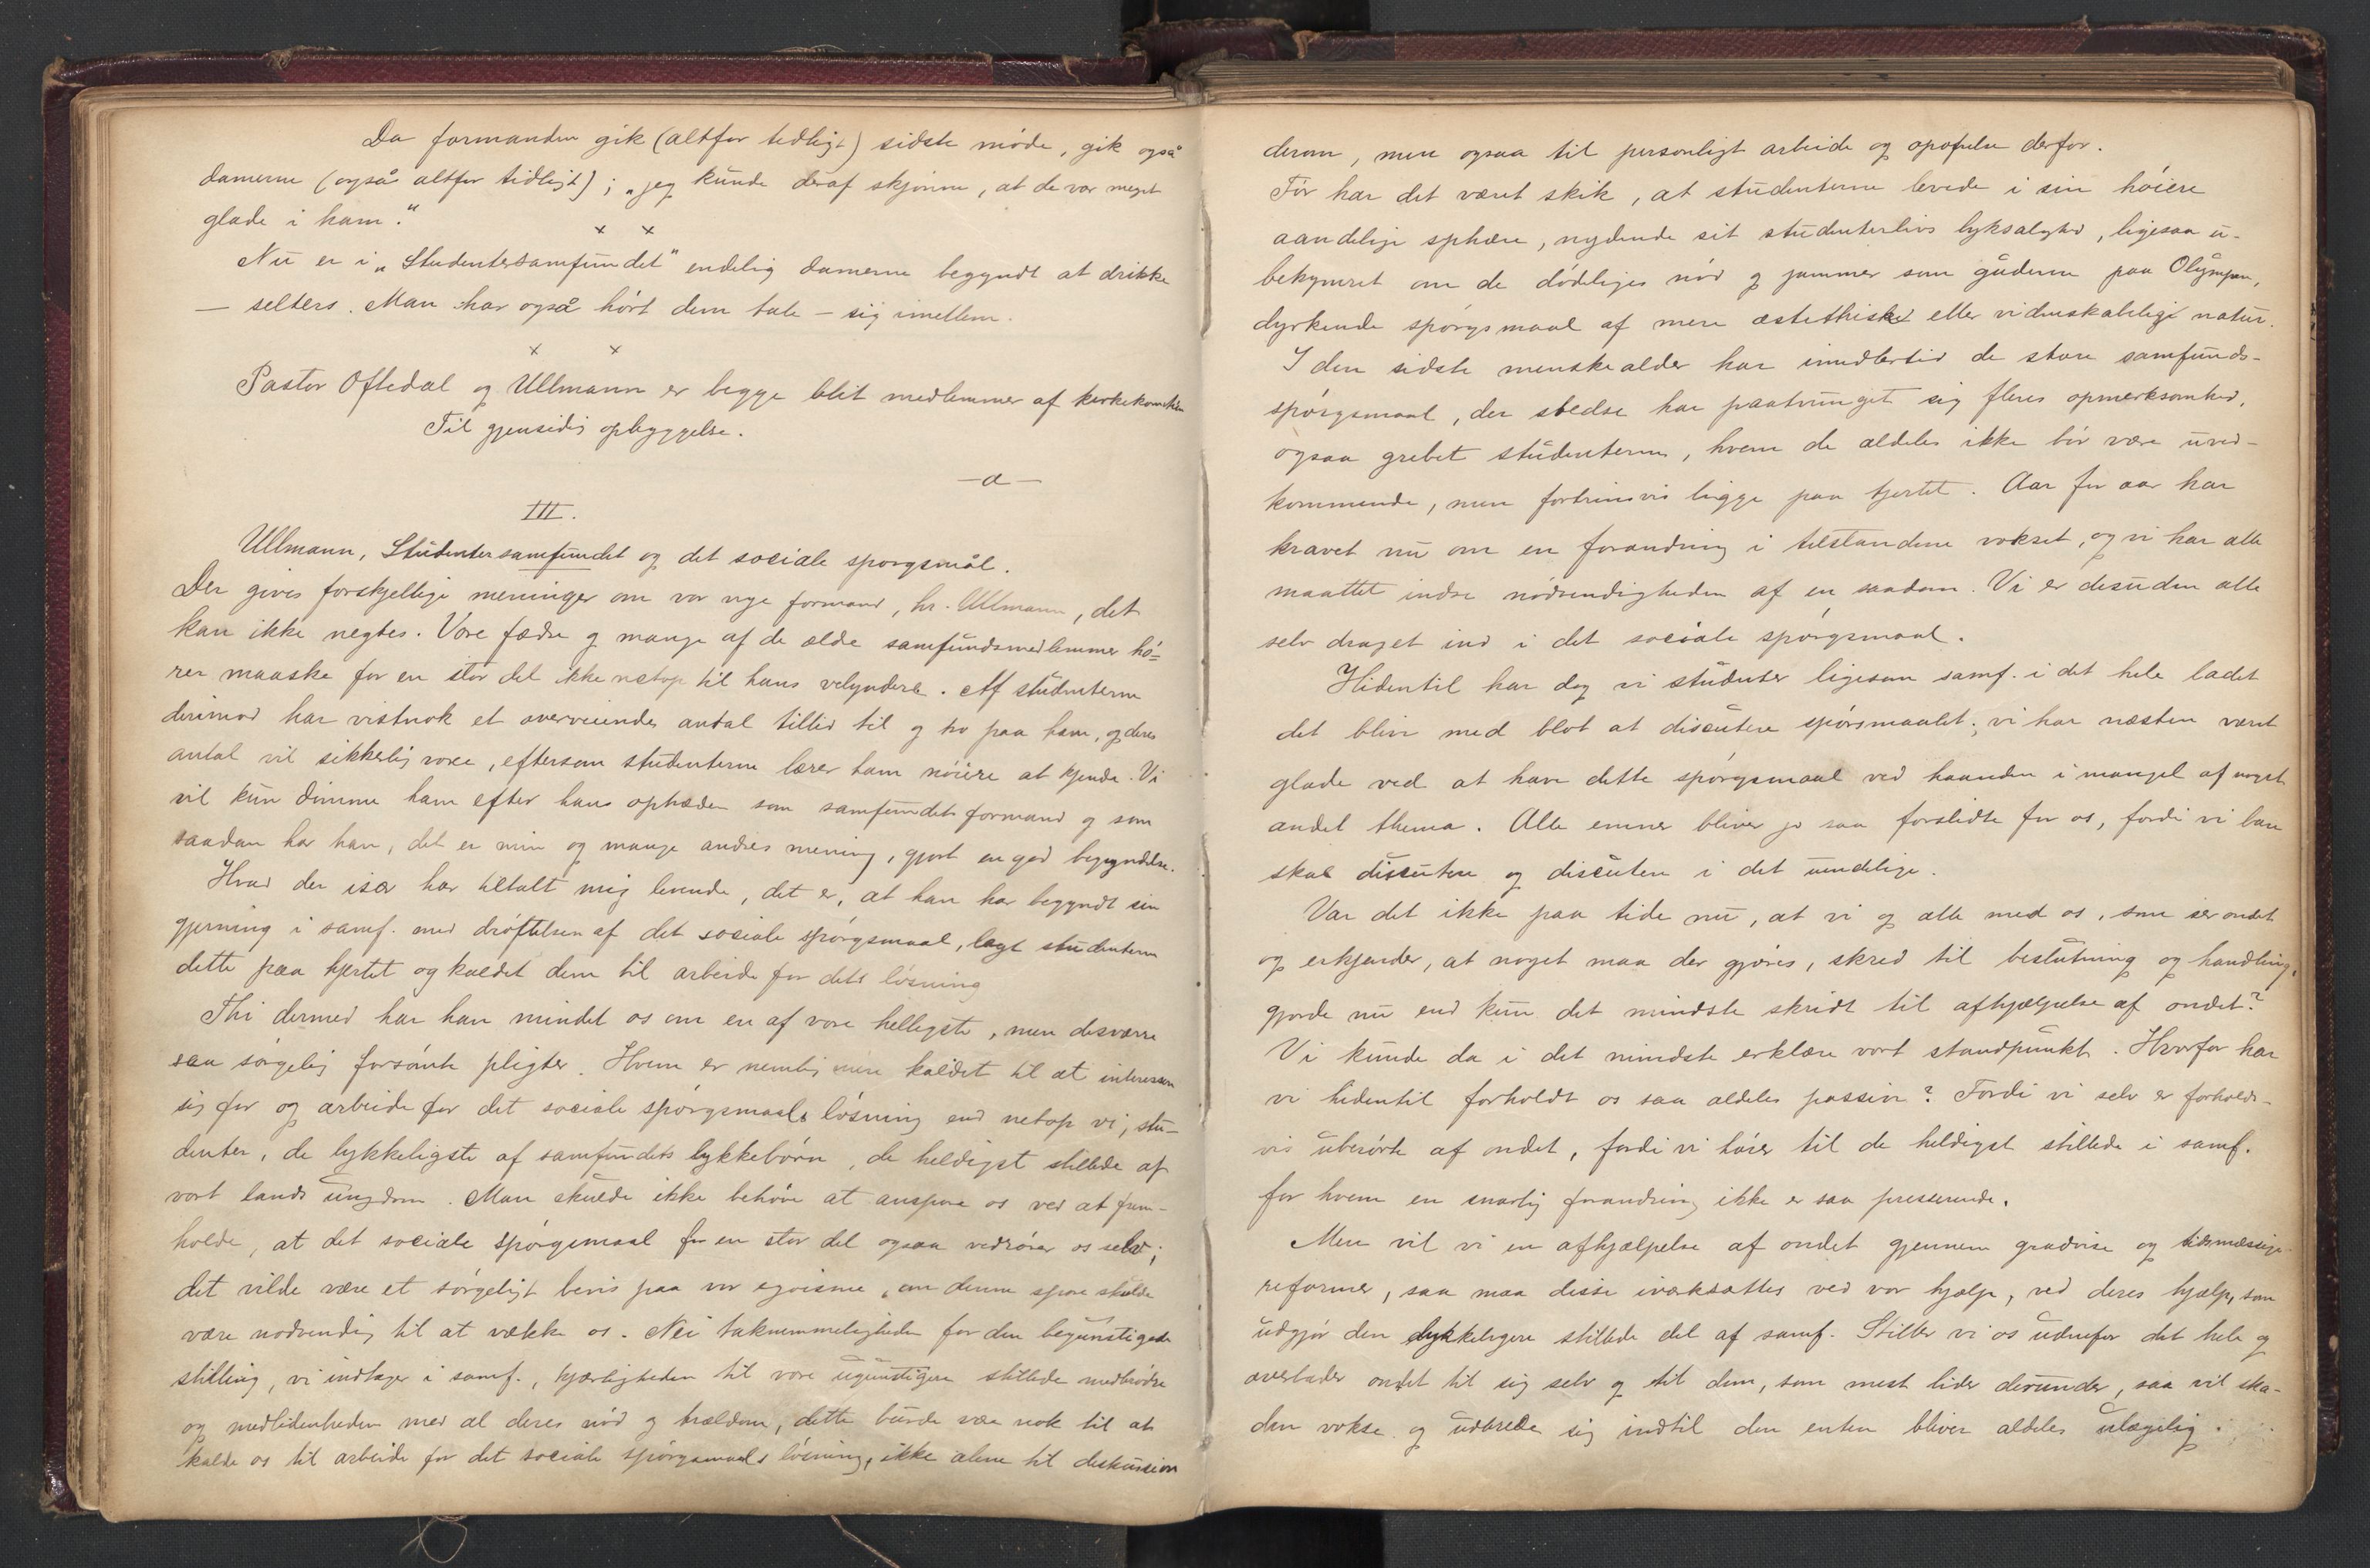 Da formanden gik (altfor tidligt) sidste møde, gik også
damerne (også altfor tidligt); „jeg kunde deraf skjønne, at de var meget
glade i ham.“
x x
Nu er i „Studentersamfundet“ endelig damerne begyndt at drikke
— selters. Man har også hørt dem tale — sig imellem.
x x
Pastor Oftedal og Ullmann er begge blit medlemmer af kirkekomiteen
Til gjensidig opbyggelse.
—a—
III.
Ullmann, Studentersamfundet og det sociale spørgsmål.
Der gives forskjellige meninger om vor nye formand, hr. Ullmann, det
kan ikke negtes. Vore fædre og mange af de ældre samfundsmedlemmer hø-
rer maaske for en stor del ikke netop til hans velyndere. Af studenterne
derimod har vistnok et overveiende antal tillid til og tro paa ham, og deres
antal vil sikkerlig voxe, eftersom studenterne lærer ham nøiere at kjende. Vi
vil kun dømme ham efter hans optræden som samfundets formand og som
saadan har han, det er min og mange andres mening, gjort en god begyndelse.
Hvad der især har tiltalt mig levende, det er, at han har begyndt sin
gjerning i samf. med drøftelsen af det sociale spørgsmaal, lagt studenterne
dette paa hjertet og kaldet dem til arbeide for dets løsning
Thi dermed har han mindet os om en af vore helligste, men desværre
saa sørgelig forsømte pligter. Hvem er nemlig mere kaldet til at interessere
sig for og arbeide for det sociale spørgsmaals løsning end netop vi, stu-
denter, de lykkeligste af samfundets lykkebørn, de heldigst stillede af
vort lands ungdom. Man skulde ikke behøve at anspore os ved at frem-
holde, at det sociale spørgsmaal for en stor del ogsaa vedrører os selv;
det vilde være et sørgeligt bevis paa vor egoisme, om denne spore skulde
være nødvendig til at vække os. Nei taknemmeligheden for den begunstigede
stilling, vi indtager i samf., kjærligheden til vore ugunstigere stillede medbrødre
og medlidenheden med al deres nød og trældom, dette burde være nok til at
kalde os til arbeide for det sociale spørgsmaals løsning, ikke alene til diskussion
derom, men ogsaa til personligt arbeide og opofrelse derfor.
Før har det været skik, at studenterne levede i sin høiere
aandelige sphære, nydende sit studenterlivs lyksalighed, ligesaa u-
bekymret om de dødeliges nød og jammer som guderne paa Olympen,
dyrkende spørgsmaal af mere æstethisk eller videnskabelige natur.
I den sidste menskealder har imidlertid de store samfunds-
spørgsmaal, der stedse har paatvunget sig fleres opmerksomhed,
ogsaa grebet studenterne, hvem de aldeles ikke bør være uved-
kommende, men fortrinsvis ligge paa hjertet. Aar for aar har
kravet nu om en forandring i tilstandene vokset, og vi har alle
maattet indse nødvendigheden af en saadan. Vi er desuden alle
selv draget ind i det sociale spørgsmaal.
Hidentil har dog vi studenter ligesom samf. i det hele ladet
det blive med blot at discutere spørsmaalet; vi har næsten været
glade ved at have dette spørgsmaal ved haanden i mangel af noget
andet thema. Alle emner bliver jo saa forslidte for os, fordi vi bare
skal discutere og discutere i det uendelige.
Var det ikke paa tide nu, at vi og alle med os, som ser ondet
og erkjender, at noget maa der gjøres, skred til beslutning og handling,
gjorde nu end kun det mindste skridt til afhjælpelse af ondet?
Vi kunde da i det mindste erklære vort standpunkt. Hvorfor har
vi hidentil forholdt os saa aldeles passive? Fordi vi selv er forholds-
vis uberørte af ondet, fordi vi hører til de heldigst stillede i samf.
for hvem en snarlig forandring ikke er saa presserende.
Men vil vi en afhjælpelse af ondet gjennem gradvise og tidsmæssige
reformer, saa maa disse iverksættes ved vor hjælp, ved deres hjælp, som
udgjør den lykkeligere stillede del af samf. Stiller vi os udenfor det hele og
overlader ondet til sig selv og til dem, som mest lider derunder, saa vil ska-
den vokse og udbrede sig indtil den enten bliver aldeles ulægelig.